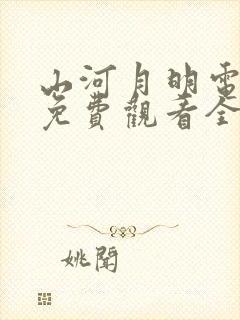 山河月明電
免費觀看全
姚聞